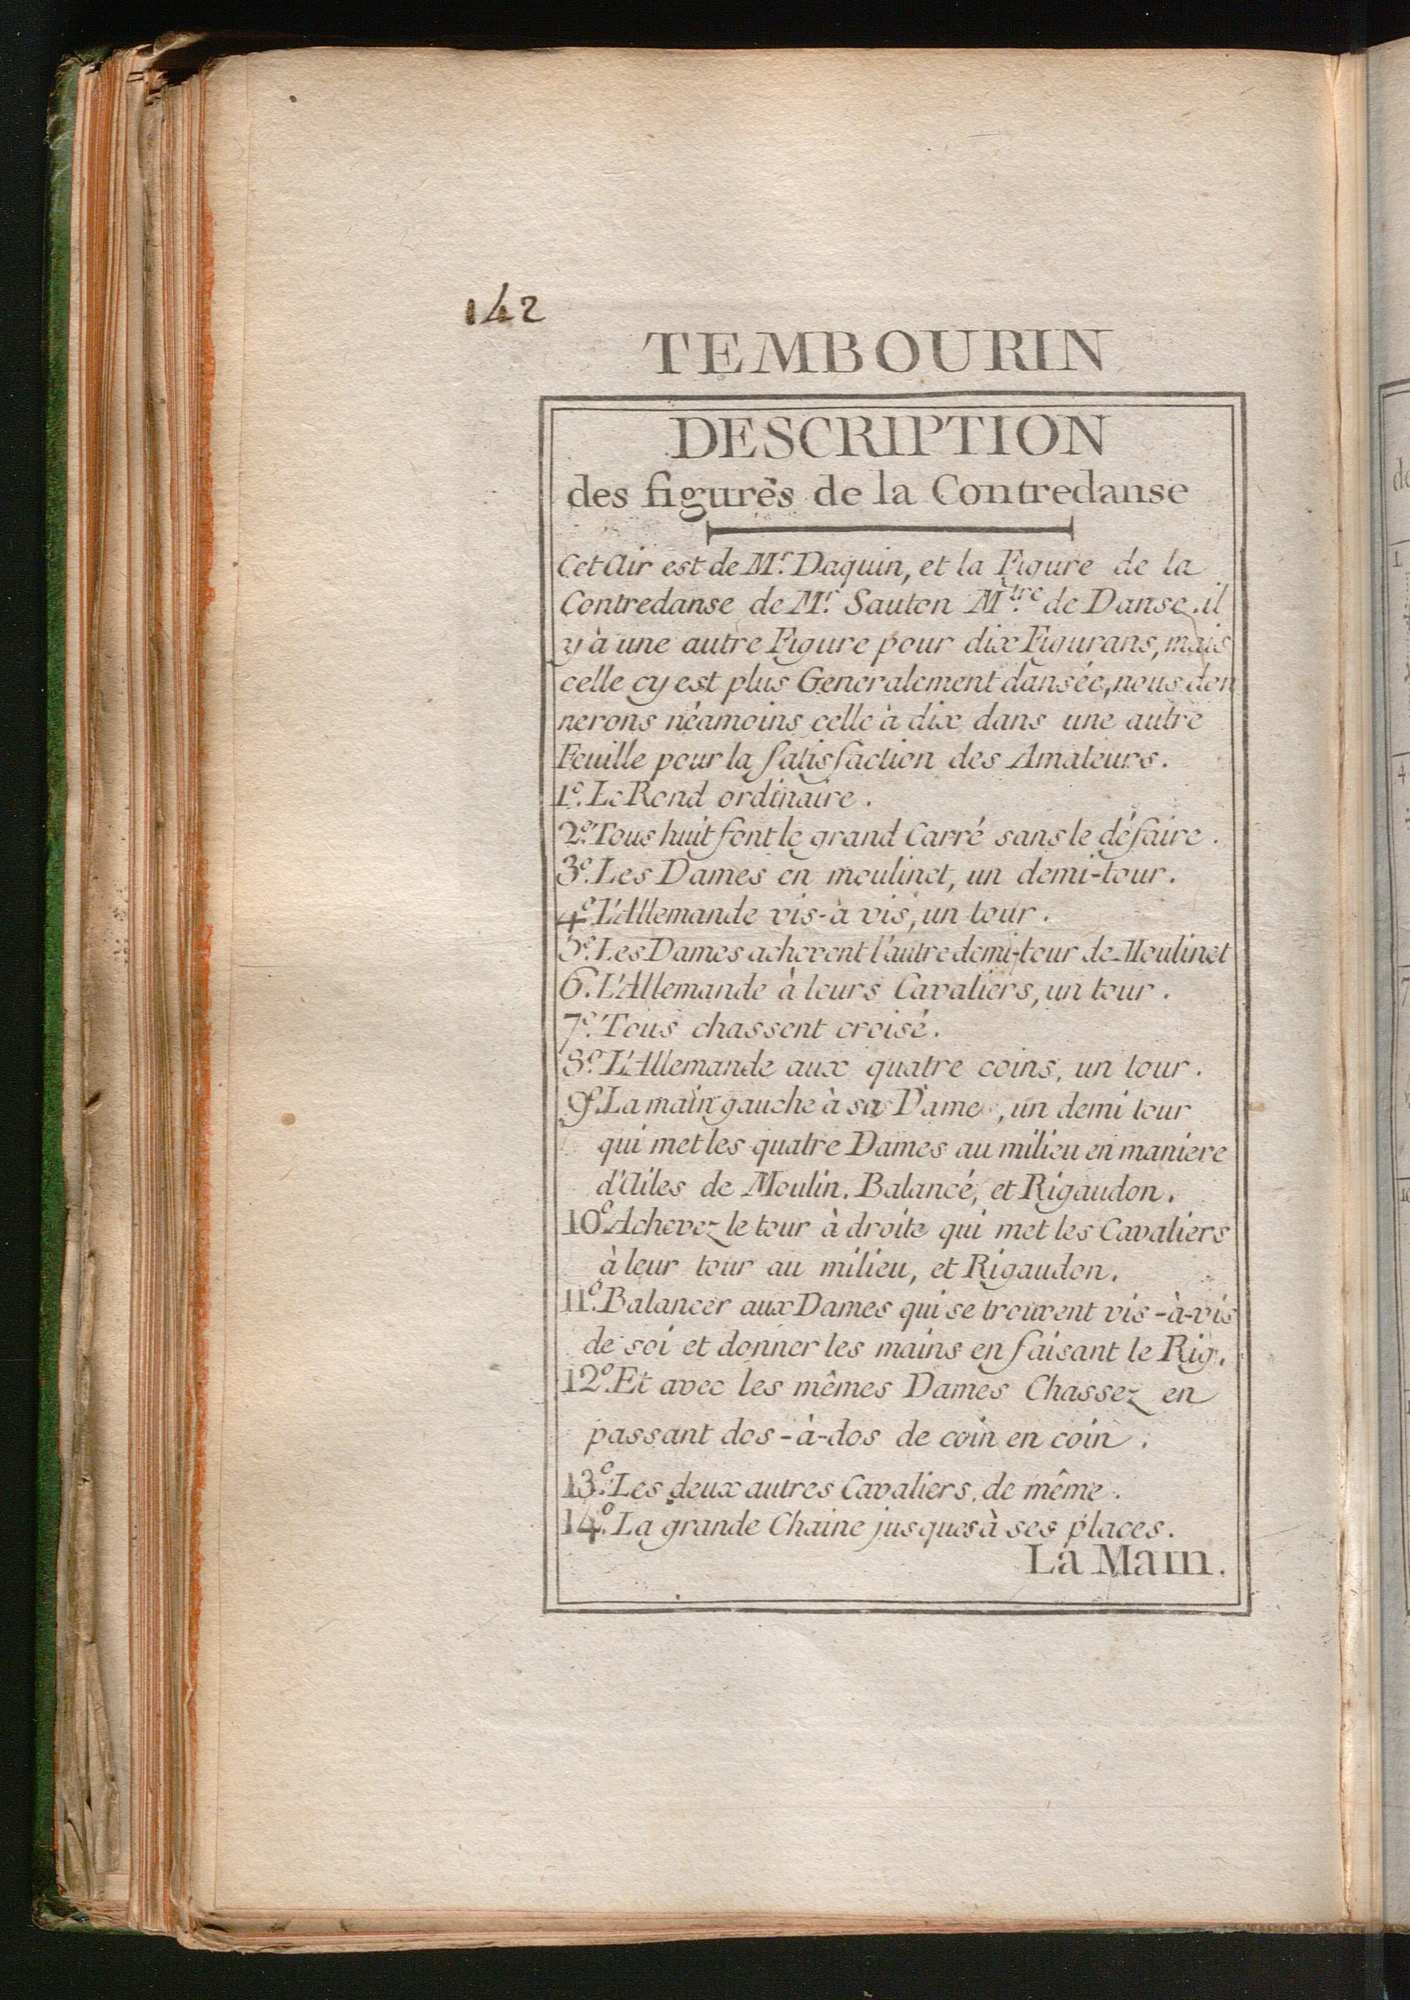 142
TEMBOURIN
DESCRIPTION
des figurès de la Contredanse
Cet Air est de Mr. Daquin, et la Figure de la
Contredanse de Mr. Sauton Mtre. de Danse. il
y à une autre Figure pour dix Figurans, mais
celle cy est plus Generalement dansée, nous don
nerons néamoins celle à dix dans une autre
Feuille pour la satisfaction des Amateurs.
1e. Le Rond ordinaire.
2e. Tous huit font le grand Carré sans le défaire.
3e. Les Dames en moulinet, un demi-tour.
4e. L'Allemande vis-à vis, un tour.
5e. Les Dames achevent l'autre demi-tour de Moulinet
6. L'Allemande à leurs Cavaliers, un tour.
7e. Tous chassent croisé.
8e. L'Allemande aux quatre coins, un tour.
9e. La main gauche à sa Dame, un demi tour
qui met les quatre Dames au milieu en maniere
d'Ailes de Moulin. Balancé, et Rigaudon.
10e. Achevez le tour à droite qui met les Cavaliers
à leur tour au milieu, et Rigaudon.
11e. Balancer aux Dames qui se trouvent vis-à-vis
de soi et donner les mains en faisant le Rig.
12e. Et avec les mêmes Dames Chassez en
passant dos-à-dos de coin en coin.
13e. Les deux autres Cavaliers, de même.
14e. La grande Chaine jusques à ses places.
La Main.